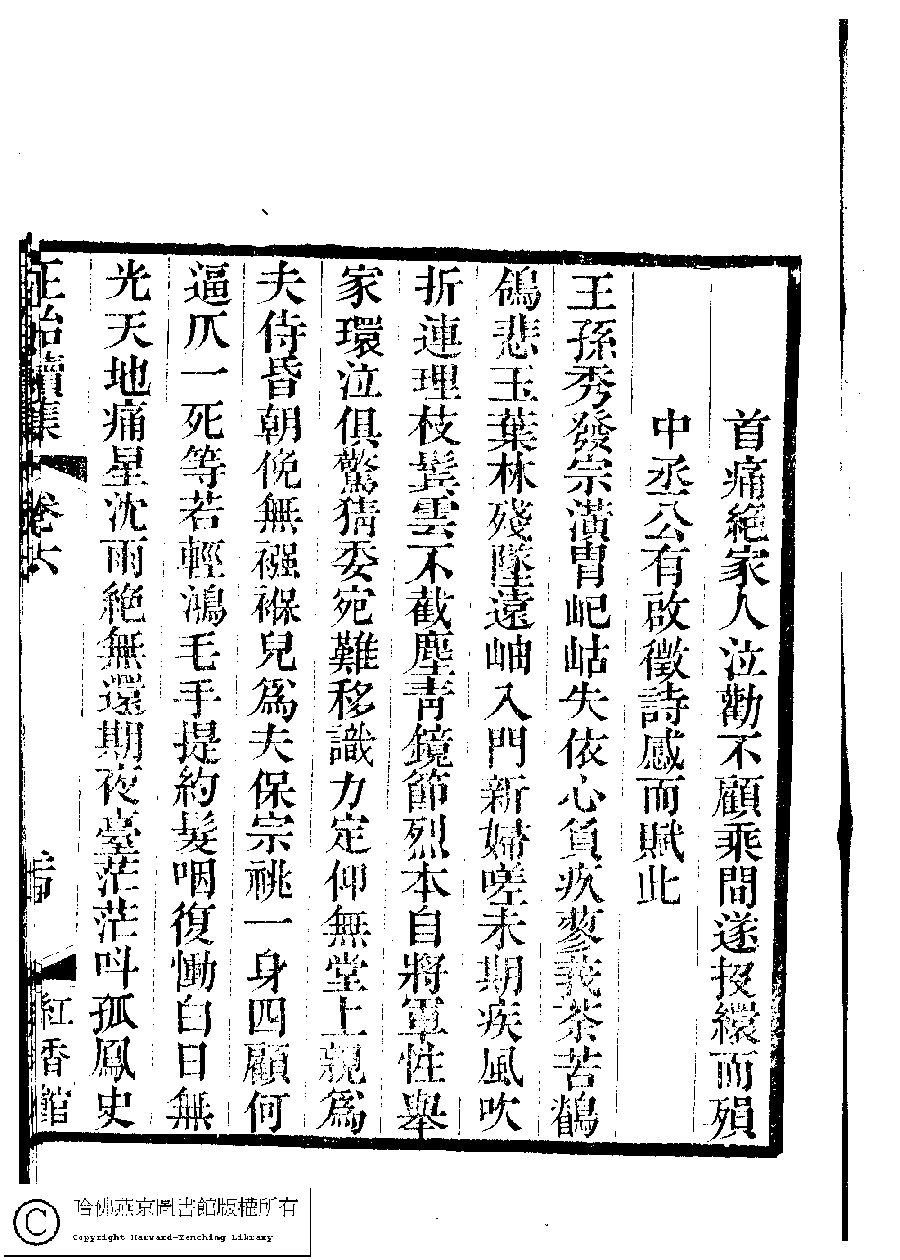 首痛絕家人泣勸不顧乘間遂投繯而殞
中丞公有啟徵詩感而賦此
王孫秀發宗潢胄屺岵失依心負疚蓼莪茶苦鶺
鴒悲玉葉林殘墜遠岫入門新婦嗟未期疾風吹
折連理枝鬓雲不截塵靑鏡節烈本自將軍性舉
家環泣俱驚猜委宛難移識力定仰無堂上親爲
夫侍昏朝俛無襁褓兒爲夫保宗祧一身四顧何
逼爪一死等若輕鴻毛手提約髮咽復慟白日無
光天地痛星沈雨絶無還期夜臺茫茫呌孤鳳史
正始續集
卷六
紅香館
哈佛燕京圖書館版權所有
Copyright Harvard-Yenching Library